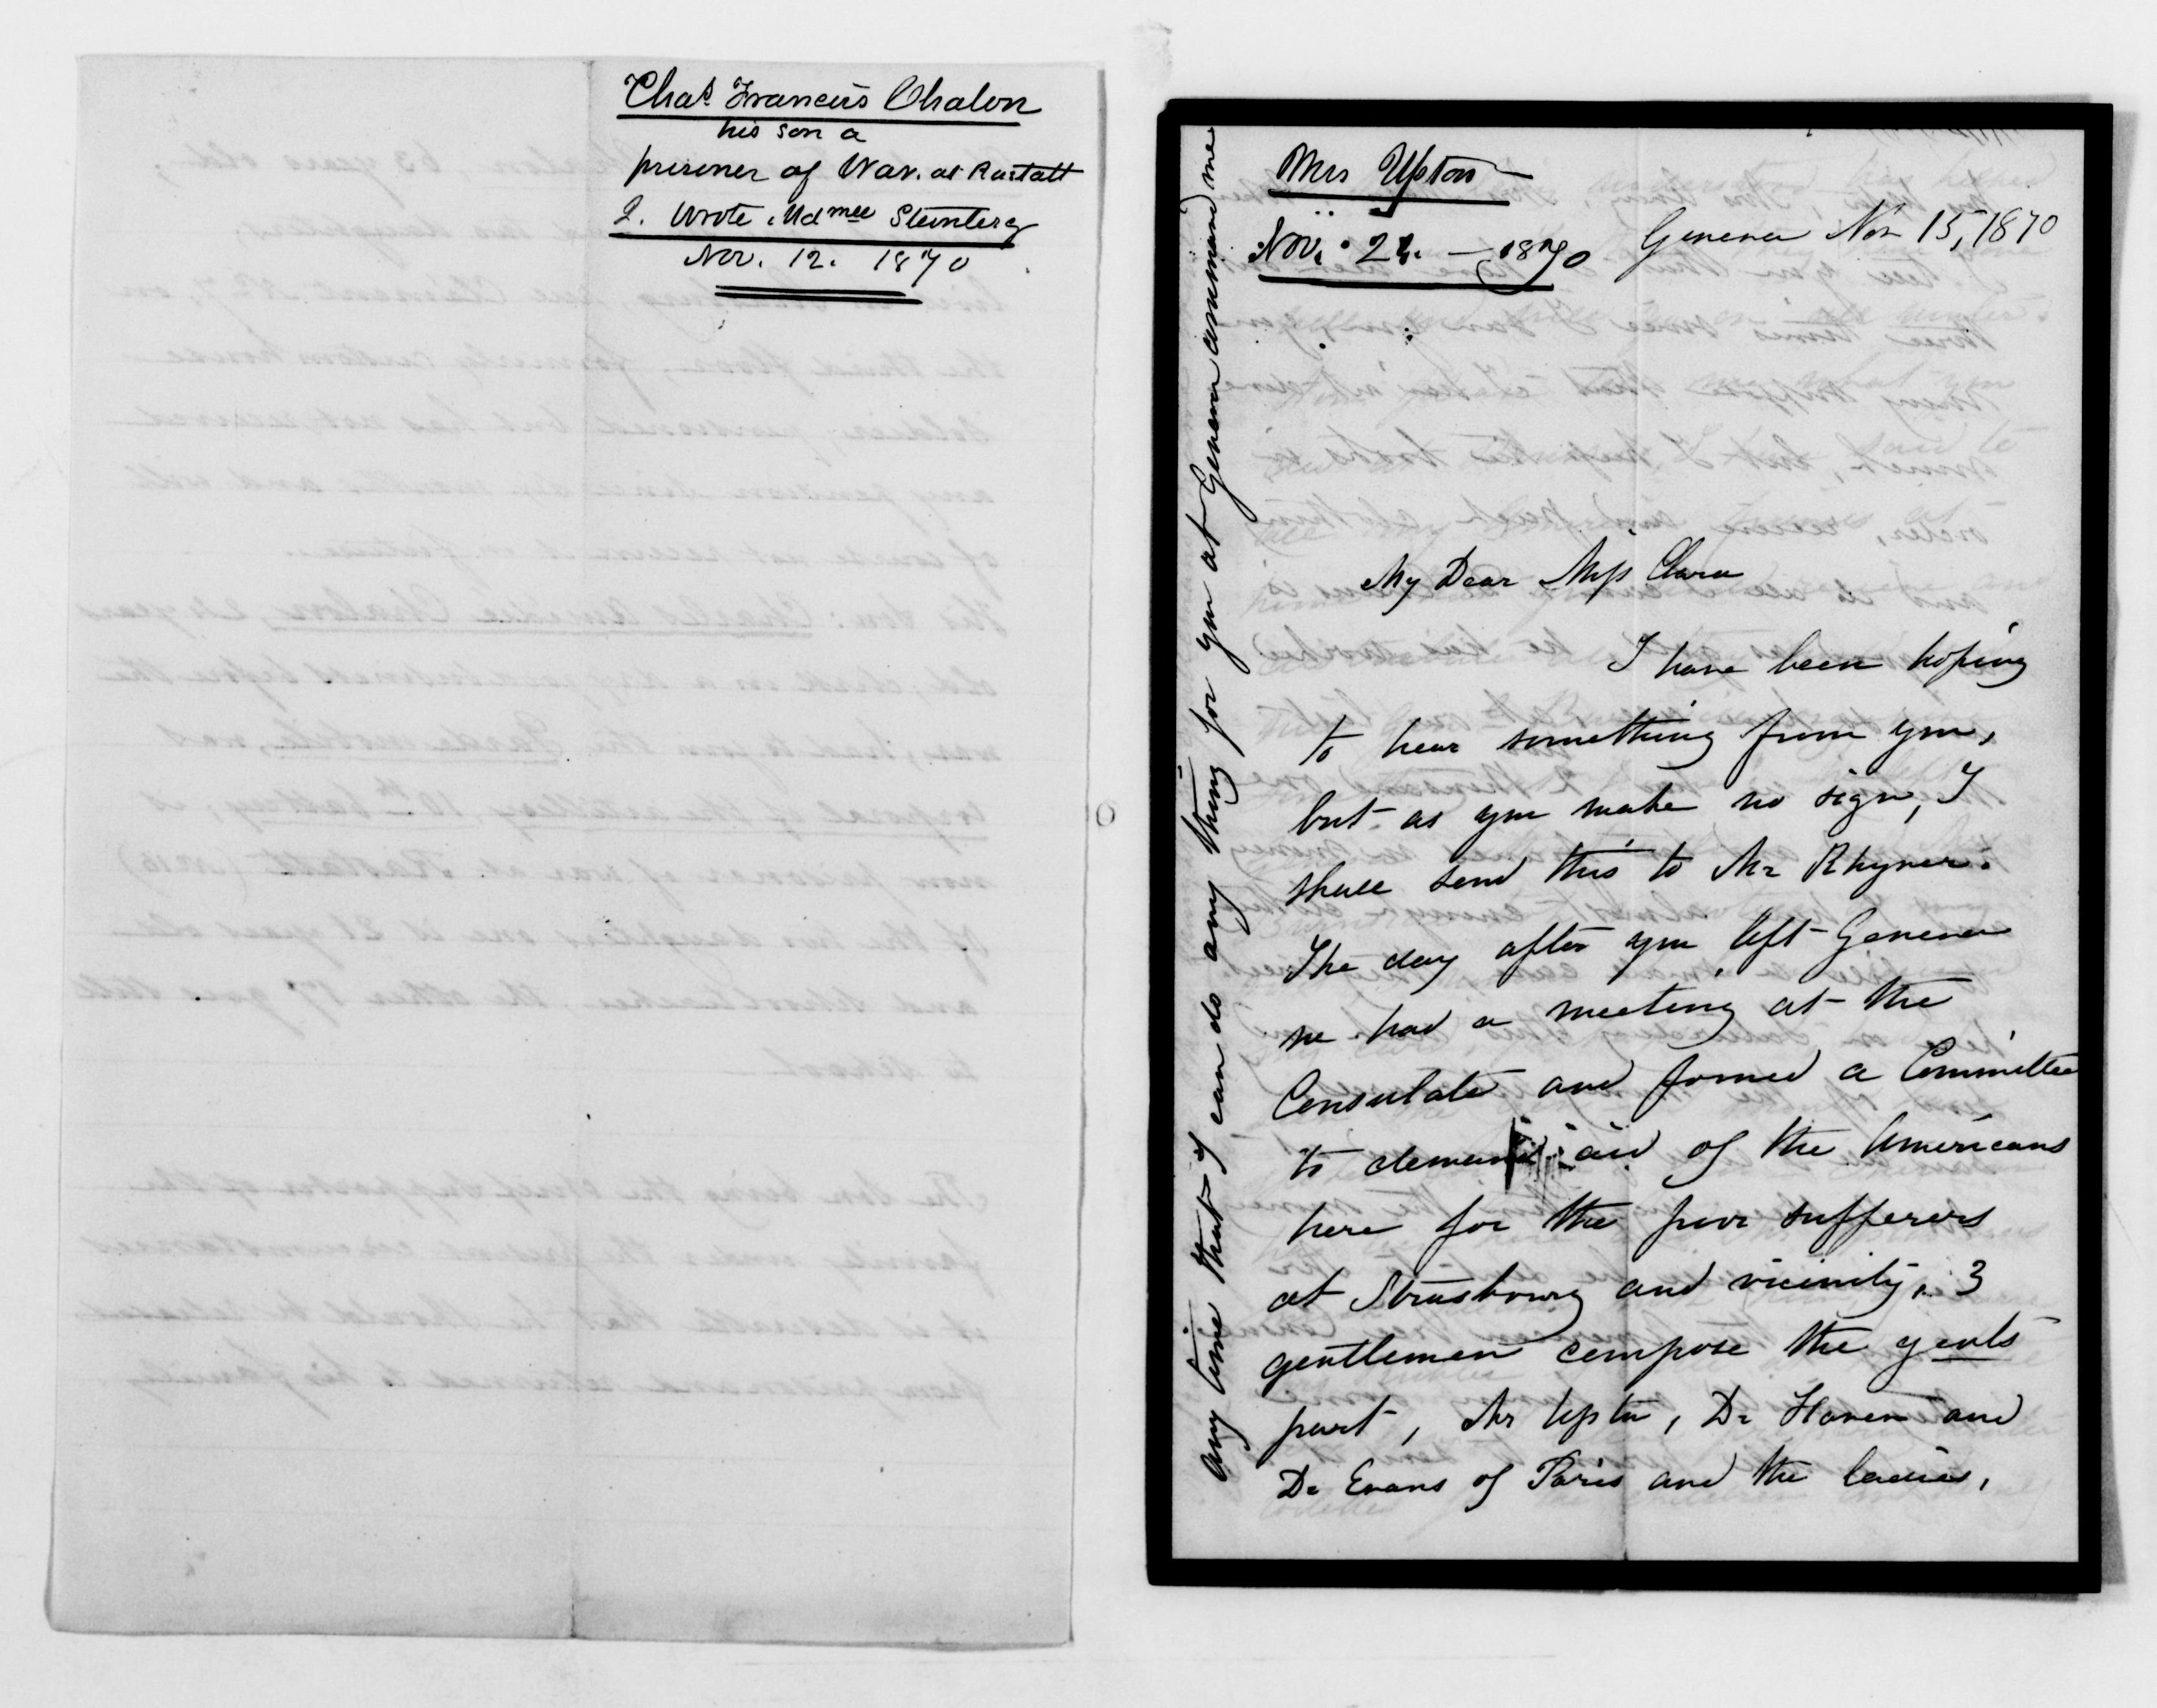 Chas. Francis Chalon
his son a
prisoner of War. at Rastatt
2. Wrote Madmee Steinberg
Nov. 12. 1870
Mrs Upton
Nov. 22. — 1870
Geneva Nov 15, 1870
My Dear Miss Clara
I have been hoping
to hear something from you,
but as you make no sign, I
shall send this to Mr Rhyner.
The day after you left Geneva
we had a meeting at the
Consulate and formed a Committee
to demand aid of the Americans
here for the poor sufferers
at Strasbourg and vicinity, 3
gentlemen compose the gents
part, Mr Upton, Dr Haven and
Dr Evans of Paris and the ladies,
Any time that I can do any thing for you at Geneva command me